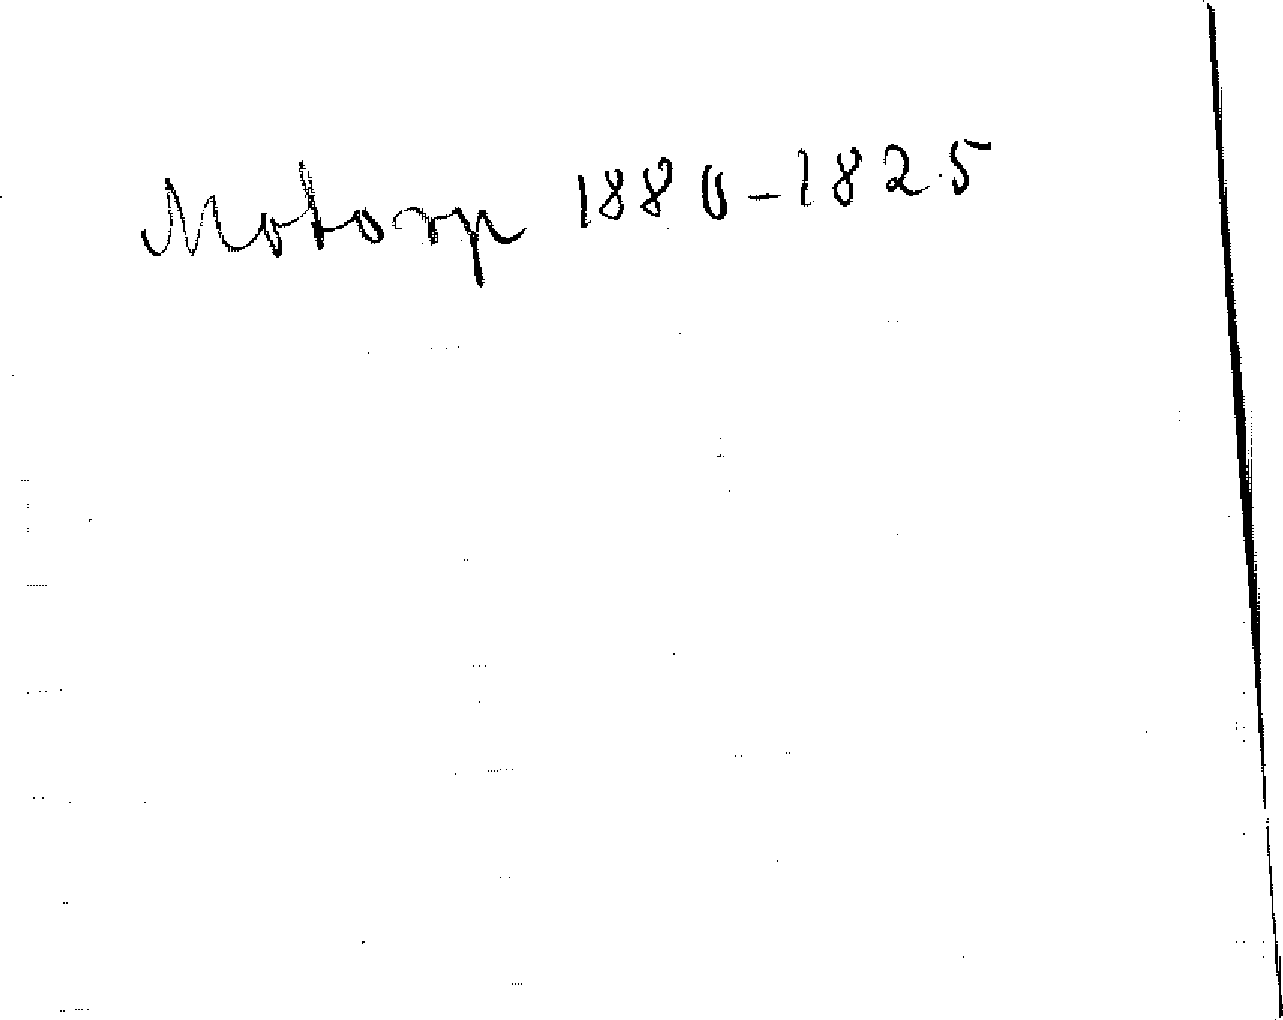 Motorp 1880-1825